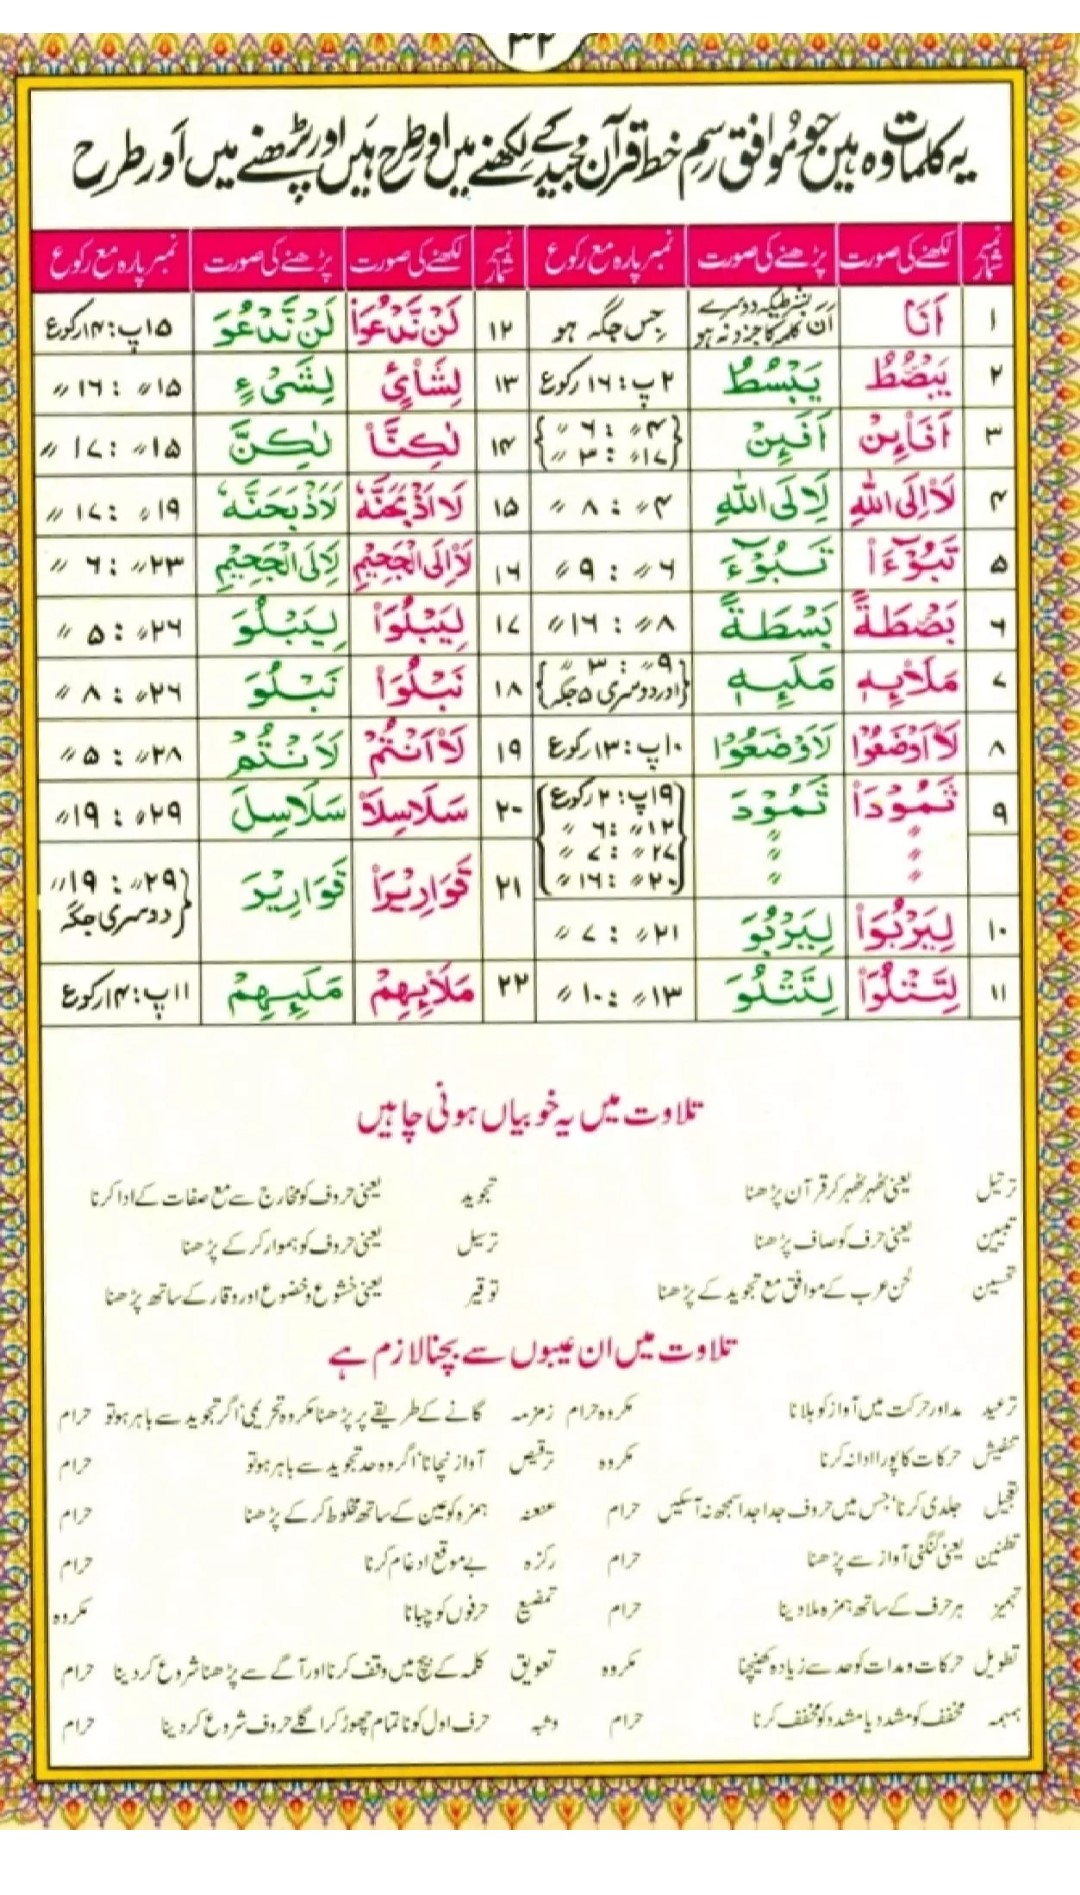 ۳۲
یہ کلمات وہ ہیں جو مُوافق رسمِ خط قرآن مجید کے لکھنے میں اور طرح ہیں اور پڑھنے میں اَور طرح
نمبر شمار لکھنے کی صورت پڑھنے کی صورت نمبر پارہ مع رکوع نمبر شمار لکھنے کی صورت پڑھنے کی صورت نمبر پارہ مع رکوع
۱ اَنَا اَنَ بشرطیکہ دوسرے کلمہ کا جزو نہ ہو جِس جگہ ہو ۱۲ لَنْ نَّدْعُوَا۟ لَنْ نَّدْعُوَ ۱۵پ: ۱۴رکوع
۲ يَبْصُۜطُ يَبْسُطُ ۲پ: ۱۶ رکوع ۱۳ لِشَا۟یْءٍ لِشَیْءٍ ۱۵〃 : ۱۶ 〃
۳ اَفَا۟ئِنْ اَفَئِنْ {۴〃 : ۶ 〃 ۱۷〃 : ۳ 〃} ۱۴ لٰكِنَّا۟ لٰكِنَّ ۱۵〃 : ۱۷ 〃
۴ لَا۟اِلَی اللّٰهِ لَاِلَی اللّٰهِ ۴〃 : ۸ 〃 ۱۵ لَا۟اَذْبَحَنَّهٗ لَاَذْبَحَنَّهٗ ۱۹〃 : ۱۷ 〃
۵ تَبُوْٓءَا۟ تَبُوْٓءَ ۶〃 : ۹ 〃 ۱۶ لَا۟اِلَی الْجَحِيْمِ لَاِلَی الْجَحِيْمِ ۲۳〃 : ۶ 〃
۶ بَصْۜطَةً بَسْطَةً ۸〃 : ۱۶〃 ۱۷ لِيَبْلُوَا۟ لِيَبْلُوَ ۲۶〃 : ۵ 〃
۷ مَلَا۟ئِهٖ مَلَئِهٖ {۹〃 : ۳ 〃 اور دوسری ۵ جگہ} ۱۸ نَبْلُوَا۟ نَبْلُوَ ۲۶〃 : ۸ 〃
۸ لَا۟اَوْضَعُوْا لَاَوْضَعُوْا ۱۰پ: ۱۳رکوع ۱۹ لَا۟اَنْتُمْ لَاَنْتُمْ ۲۸〃 : ۵ 〃
۹ ثَمُوْدَا۟ ثَمُوْدَ {۱۹پ: ۲ رکوع ۲۰ سَلَاسِلَا۟ سَلَاسِلَ ۲۹〃 : ۱۹〃
〃 〃 ۱۲〃 : ۶ 〃
〃 〃 ۲۷〃 : ۷ 〃 ۲۱ قَوَارِيْرَا۟ قَوَارِيْرَ {۲۹〃 : ۱۹〃 دوسری جگہ
〃 〃 ۲۰〃 : ۱۶ 〃}
۱۰ لِيَرْبُوَا۟ لِيَرْبُوَ ۲۱〃 : ۷ 〃
۱۱ لِتَتْلُوَا۟ لِتَتْلُوَ ۱۳〃 : ۱۰ 〃 ۲۲ مَلَا۟ئِهِمْ مَلَئِهِمْ ۱۱پ: ۱۴رکوع
تلاوت میں یہ خوبیاں ہونی چاہیں
ترتیل یعنی ٹھہر ٹھہر کر قرآن پڑھنا تجوید یعنی حروف کو مخارج سے مع صفات کے ادا کرنا
تبیین یعنی حرف کو صاف پڑھنا ترسیل یعنی حروف کو ہموار کر کے پڑھنا
تحسین لحن عرب کے موافق مع تجوید کے پڑھنا توقیر یعنی خشوع و خضوع اور وقار کے ساتھ پڑھنا
تلاوت میں ان عیبوں سے بچنا لازم ہے
ترعید مد اور حرکت میں آواز کو ہلانا مکروہ حرام زمزمہ گانے کے طریقے پر پڑھنا مکروہ تحریمی اگر تجوید سے باہر ہو تو حرام
تنفیش حرکات کا پورا ادا نہ کرنا مکروہ ترقیص آواز نچانا، اگر وہ حد تجوید سے باہر ہو تو حرام
تعجیل جلدی کرنا، جس میں حروف جدا جدا سمجھ نہ آسکیں حرام عنعنہ ہمزہ کو عین کے ساتھ مخلوط کر کے پڑھنا حرام
تطنین یعنی گنگنی آواز سے پڑھنا حرام رکزہ بے موقع ادغام کرنا حرام
تہمیز ہر حرف کے ساتھ ہمزہ ملا دینا حرام تمضیغ حرفوں کو چبانا مکروہ
تطویل حرکات و مدات کو حد سے زیادہ کھینچنا مکروہ تعویق کلمہ کے بیچ میں وقف کرنا اور آگے سے پڑھنا شروع کر دینا حرام
ہمہمہ مخفف کو مشدد یا مشدد کو مخفف کرنا حرام وثبہ حرف اول کو ناتمام چھوڑ کر اگلے حروف شروع کر دینا حرام